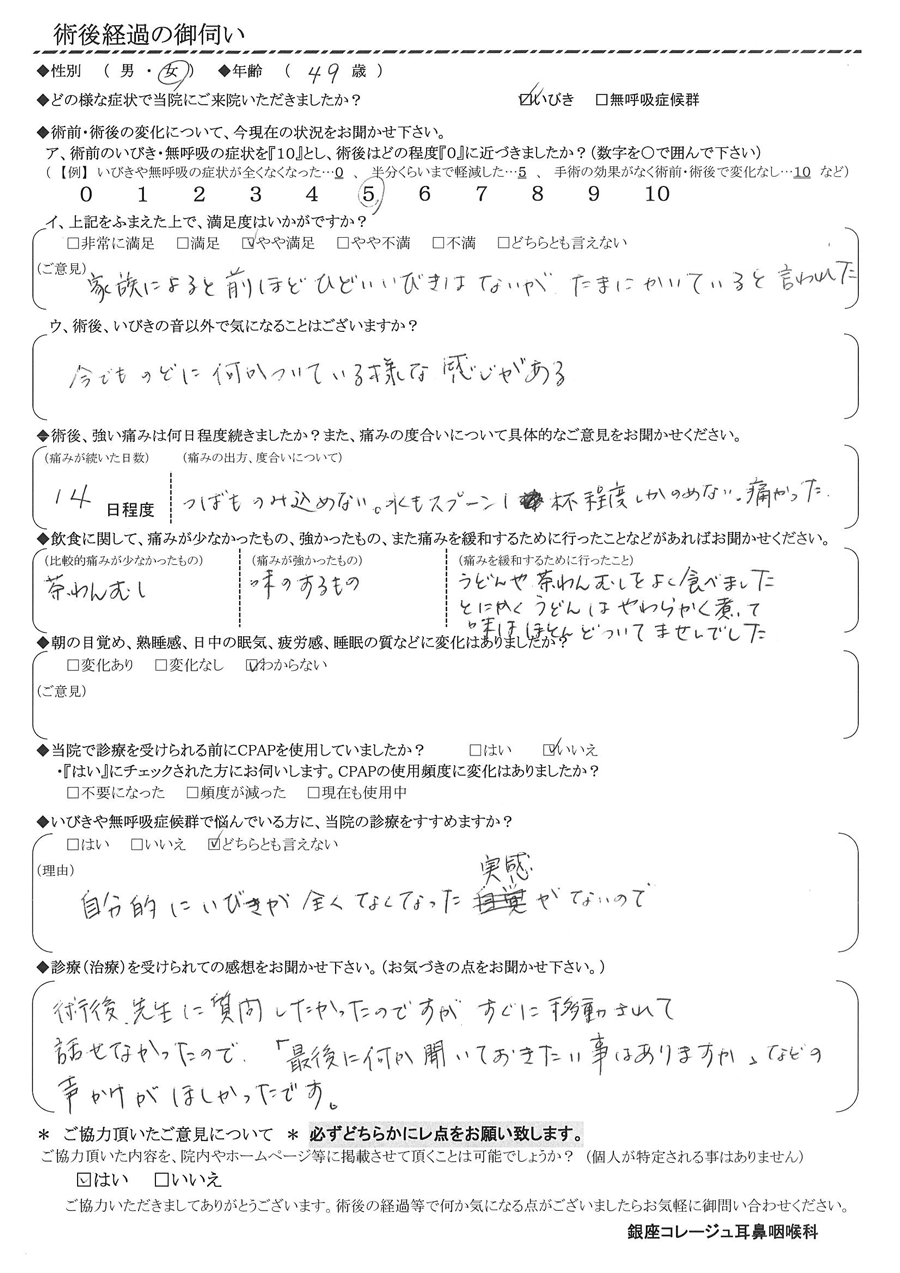 術後経過の御伺い
◆性別 ( 男 ・ 女 ) ◆年齢 ( 49 歳 )
◆どの様な症状で当院にご来院いただきましたか? ☑いびき □無呼吸症候群
◆術前・術後の変化について、今現在の状況をお聞かせ下さい。
ア、術前のいびき・無呼吸の症状を『10』とし、術後はどの程度『0』に近づきましたか?(数字を〇で囲んで下さい)
(【例】いびきや無呼吸の症状が全くなくなった…0 、 半分くらいまで軽減した…5 、 手術の効果がなく術前・術後で変化なし…10 など)
0 1 2 3 4 5 6 7 8 9 10
イ、上記をふまえた上で、満足度はいかがですか?
□非常に満足 □満足 ☑やや満足 □やや不満 □不満 □どちらとも言えない
(ご意見) 家族によると前ほどひどいいびきはないが たまにかいていると言われた
ウ、術後、いびきの音以外で気になることはございますか?
今でものどに何かついている様な感じがある
◆術後、強い痛みは何日程度続きましたか?また、痛みの度合いについて具体的なご意見をお聞かせください。
(痛みが続いた日数) (痛みの出方、度合いについて)
14 日程度 つばものみ込めない。水もスプーン1杯程度しかのめない。痛かった.
◆飲食に関して、痛みが少なかったもの、強かったもの、また痛みを緩和するために行ったことなどがあればお聞かせください。
(比較的痛みが少なかったもの) (痛みが強かったもの) (痛みを緩和するために行ったこと)
茶わんむし 味のするもの うどんや茶わんむしをよく食べました
とにかくうどんはやわらかく煮て
味はほとんどついてませんでした
◆朝の目覚め、熟睡感、日中の眠気、疲労感、睡眠の質などに変化はありましたか?
□変化あり □変化なし ☑わからない
(ご意見)
◆当院で診療を受けられる前にCPAPを使用していましたか? □はい ☑いいえ
・『はい』にチェックされた方にお伺いします。CPAPの使用頻度に変化はありましたか?
□不要になった □頻度が減った □現在も使用中
◆いびきや無呼吸症候群で悩んでいる方に、当院の診療をすすめますか?
□はい □いいえ ☑どちらとも言えない
(理由)
自分的にいびきが全くなくなった実感がないので
◆診療(治療)を受けられての感想をお聞かせ下さい。(お気づきの点をお聞かせ下さい。)
術後、先生に質問したかったのですがすぐに移動されて
話せなかったので、「最後に何か聞いておきたい事はありますか」などの
声かけがほしかったです。
＊ ご協力頂いたご意見について ＊ 必ずどちらかにレ点をお願い致します。
ご協力頂いた内容を、院内やホームページ等に掲載させて頂くことは可能でしょうか? (個人が特定される事はありません)
☑はい □いいえ
ご協力いただきましてありがとうございます。術後の経過等で何か気になる点がございましたらお気軽に御問い合わせください。
銀座コレージュ耳鼻咽喉科